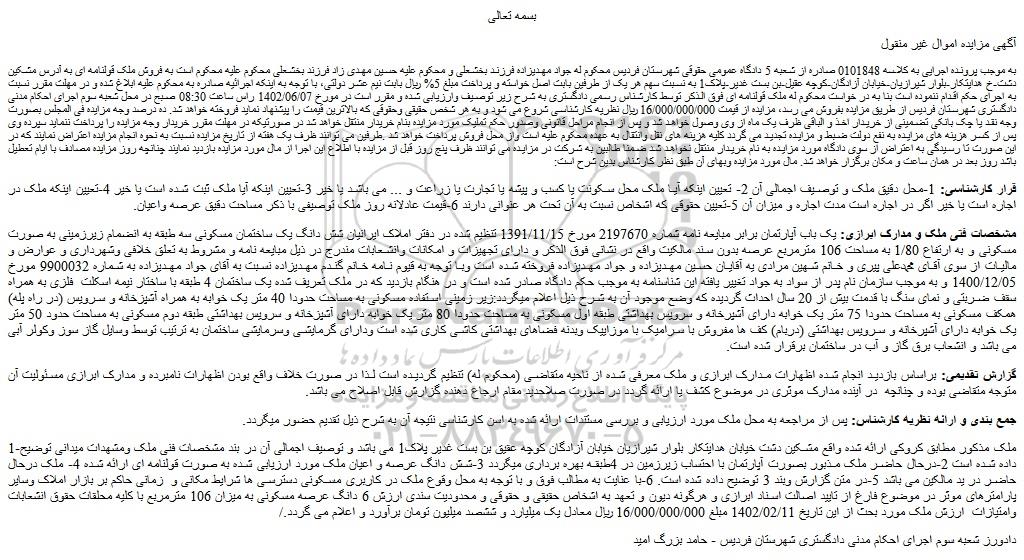 بسمه تعالی
آگهی مزایده اموال غیر منقول
به موجب پرونده اجرایی به کلاسه 0101848 صادره از شعبه 5 دادگاه عمومی حقوقی شهرستان فردیس محکوم له جواد مهدیزاده فرزند بخشعلی و محکوم علیه حسین مهدی زاد فرزند بخشعلی محکوم علیه محکوم است به فروش ملک قولنامه ای به آدرس مشکین
دشت.خ هدایتکار.بلوار شیرازیان.خیابان آزادگان.کوچه عقیق.بن بست غدیر.پلاک1 به نسبت سهم هر یک از طرفین بابت اصل خواسته و پرداخت مبلغ 5% ریال بابت نیم عشر دولتی، با توجه به اینکه اجرائیه صادره به محکوم علیه ابلاغ شده و در مهلت مقرر نسبت
به اجرای حکم اقدام ننموده است بنا به در خواست محکوم له ملک قولنامه ای فوق الذکر توسط کارشناس رسمی دادگستری به شرح زیر توصیف وارزیابی شده و مقرر است در مورخ 1402/06/07 راس ساعت 08:30 صبح در محل شعبه سوم اجرای احکام مدنی
دادگستری شهرستان فردیس از طریق مزایده بفروش می رسد، مزایده از قیمت 16/000/000/000 ریال نظریه کارشناسی شروع می شود و به هر شخص حقیقی وحقوقی که بالاترین قیمت را پیشنهاد نماید فروخته خواهد شد. ده درصد وجه مزایده فی المجلس بصورت
وجه نقد یا چک بانکی تضمینی از خریدار اخذ و الباقی ظرف یک ماه از وی وصول خواهد شد و پس از انجام مراحل قانونی وصدور حکم تملیک مورد مزایده بنام خریدار منتقل خواهد شد در صورتیکه در مهلت مقرر خریدار وجه مزایده را پرداخت ننماید سپرده وی
پس از کسر هزینه های مزایده به نفع دولت ضبط و مزایده تجدید می گردد کلیه هزینه های نقل وانتقال به عهده محکوم علیه است واز محل فروش پرداخت خواهد شد .طرفین می توانند ظرف یک هفته از تاریخ مزایده نسبت به نحوه انجام مزایده اعتراض نمایند که در
این صورت تا رسیدگی به اعتراض از سوی دادگاه مورد مزایده به نام خریدار منتقل نخواهد شد ضمنا طالبین به شرکت در مزایده می توانند ظرف پنج روز قبل از مزایده با اطلاع این اجرا از مال مورد مزایده بازدید نمایند چنانچه روز مزایده مصادف با ایام تعطیل
باشد روز بعد در همان ساعت و مکان برگزار خواهد شد. مال مورد مزایده وبهای آن طبق نظر کارشناس بدین شرح است:
قرار کارشناسی: 1-محل دقیق ملک و توصیف اجمالی آن 2- تعیین اینکه آیا ملک محل سکونت یا کسب و پیشه یا تجارت یا زراعت و ... می باشد یا خیر 3-تعیین اینکه آیا ملک ثبت شده است یا خیر 4-تعیین اینکه ملک در
اجاره است یا خیر اگر در اجاره است مدت اجاره و میزان آن 5-تعیین حقوقی که اشخاص نسبت به آن تحت هر عنوانی دارند 6-قیمت عادلانه روز ملک توصیفی با ذکر مساحت دقیق عرصه واعیان.
مشخصات فنی ملک و مدارک ابرازی: یک باب آپارتمان برابر مبایعه نامه شماره 2197670 مورخ 1391/11/15 تنظیم شده در دفتر املاک ایرانیان شش دانگ یک ساختمان مسکونی سه طبقه به انضمام زیرزمینی به صورت
مسکونی و به ارتفاع 1/80 به مساحت 106 مترمربع عرصه بدون سند مالکیت واقع در نشانی فوق الذکر و دارای تجهیزات و امکانات وانشعابات مندرج در ذیل مبایعه نامه و مشروط به تعلق خلافی وشهرداری و عوارض و
مالیات از سوی آقای محمدعلی پیری و خانم شهین مرادی به آقایان حسین مهدیزاده و جواد مهدیزاده فروخته شده است وبا توجه به قیوم نامه خانم گندم مهدیزاده نسبت به آقای جواد مهدیزاده به شماره 9900032 مورخ
1400/12/05 و به موجب سازمان نام پدر از سواد به جواد تغییر یافته این شناسنامه به موجب حکم دادگاه صادر شده است و در هنگام بازدید که در ملک تعریف شده یک ساختمان 4 طبقه با ساختار نیمه اسکلت فلزی به همراه
سقف ضربتی و نمای سنگ با قدمت بیش از 20 سال احداث گردیده که وضع موجود آن به شرح ذیل اعلام میگردد:زیر زمینی استفاده مسکونی به مساحت حدودا 40 متر یک خوابه به همراه آشپزخانه و سرویس (در راه پله)
همکف مسکونی به مساحت حدودا 75 متر یک خوابه دارای آشپزخانه و سرویس بهداشتی طبقه اول مسکونی به مساحت حدودا 80 متر یک خوابه دارای آشپزخانه و سرویس بهداشتی طبقه دوم مسکونی به مساحت حدود 50 متر
یک خوابه دارای آشپرخانه و سرویس بهداشتی (دربام) کف ها مفروش با سرامیک یا موزاییک وبدنه فضاهای بهداشتی کاشی کاری شده است ودارای گرمایشی وسرمایشی ساختمان به ترتیب توسط وسایل گاز سوز وکولر آبی
می باشد و انشعاب برق گاز و آب در ساختمان برقرار شده است.
گزارش تقدیمی: براساس بازدید انجام شده اظهارات مدارک ابرازی و ملک معرفی شده از ناحیه متقاضی (محکوم له) تنظیم گردیده است لذا در صورت خلاف واقع بودن اظهارات نامبرده و مدارک ابرازی مسئولیت آن
متوجه متقاضی بوده و چنانچه در آینده مدارک موثری در موضوع کشف یا ارائه گردد در صورت صلاحدید مقام ارجاع دهنده گزارش قابل اصلاح می باشد.
جمع بندی و ارائه نظریه کارشناس: پس از مراجعه به محل ملک مورد ارزیابی و بررسی مستندات ارائه شده به این کارشناسی نتیجه آن به شرح ذیل تقدیم حضور میگردد.
ملک مذکور مطابق کروکی ارائه شده واقع مشکین دشت خیابان هدایتکار بلوار شیرازیان خیابان آزادگان کوچه عقیق بن بست غدیر پلاک1 می باشد و توصیف اجمالی آن در بند مشخصات فنی ملک ومشهدات میدانی توضیح-1
داده شده است 2-درحال حاضر ملک مذبور بصورت آپارتمان با احتساب زیرزمین در 4طبقه بهره برداری میگردد 3-شش دانگ عرصه و اعیان ملک مورد ارزیابی شده به صورت قولنامه ای ارائه شده 4- ملک درحال
حاضر در ید مالکین می باشد 5-در متن گزارش وبند 3 توضیح داده شده است. 6-با عنایت به مطالب فوق و با توجه به محل وقوع ملک در کاربری مسکونی دسترسی ها شرایط مکانی و زمانی حاکم بر بازار املاک وسایر
پارامترهای موثر در موضوع فارغ از تایید اصالت اسناد ابرازی و هرگونه دیون و تعهد به اشخاص حقیقی و حقوقی و محدودیت سندی ارزش 6 دانگ عرصه مسکونی به میزان 106 مترمربع با کلیه محلقات حقوق انشعابات
وامتیازات ارزش ملک مورد بحث از این تاریخ 1402/02/11 مبلغ 16/000/000/000 ریال معادل یک میلیارد و ششصد میلیون تومان برآورد و اعلام می گردد./
دادورز شعبه سوم اجرای احکام مدنی دادگستری شهرستان فردیس - حامد بزرگ امید